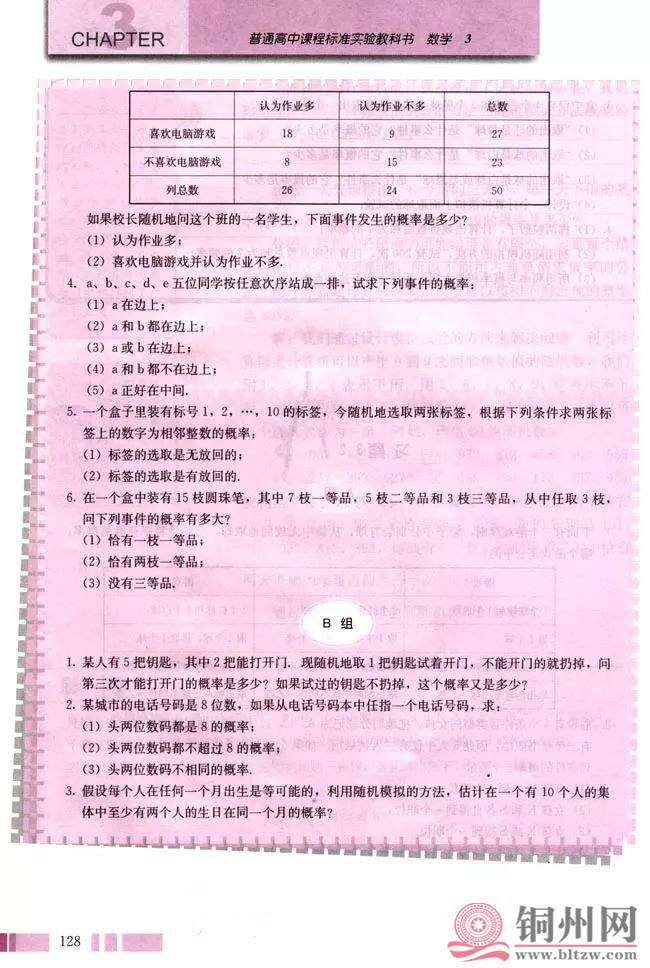 3
CHAPTER
普通高中课程标准实验教科书 数学 3
认为作业多 认为作业不多 总数
喜欢电脑游戏 18 9 27
不喜欢电脑游戏 8 15 23
列总数 26 24 50
如果校长随机地问这个班的一名学生，下面事件发生的概率是多少？
（1）认为作业多；
（2）喜欢电脑游戏并认为作业不多.
4. a、b、c、d、e五位同学按任意次序站成一排，试求下列事件的概率：
（1）a在边上；
（2）a和b都在边上；
（3）a或b在边上；
（4）a和b都不在边上；
（5）a正好在中间.
5. 一个盒子里装有标号1，2，…，10的标签，今随机地选取两张标签，根据下列条件求两张标
签上的数字为相邻整数的概率：
（1）标签的选取是无放回的；
（2）标签的选取是有放回的.
6. 在一个盒中装有15枝圆珠笔，其中7枝一等品，5枝二等品和3枝三等品，从中任取3枝，
问下列事件的概率有多大？
（1）恰有一枝一等品；
（2）恰有两枝一等品；
（3）没有三等品.
B 组
1. 某人有5把钥匙，其中2把能打开门. 现随机地取1把钥匙试着开门，不能开门的就扔掉，问
第三次才能打开门的概率是多少？如果试过的钥匙不扔掉，这个概率又是多少？
2. 某城市的电话号码是8位数，如果从电话号码本中任指一个电话号码，求：
（1）头两位数码都是8的概率；
（2）头两位数码都不超过8的概率；
（3）头两位数码不相同的概率.
3. 假设每个人在任何一个月出生是等可能的，利用随机模拟的方法，估计在一个有10个人的集
体中至少有两个人的生日在同一个月的概率？
128
铜州网
www.bltzw.com